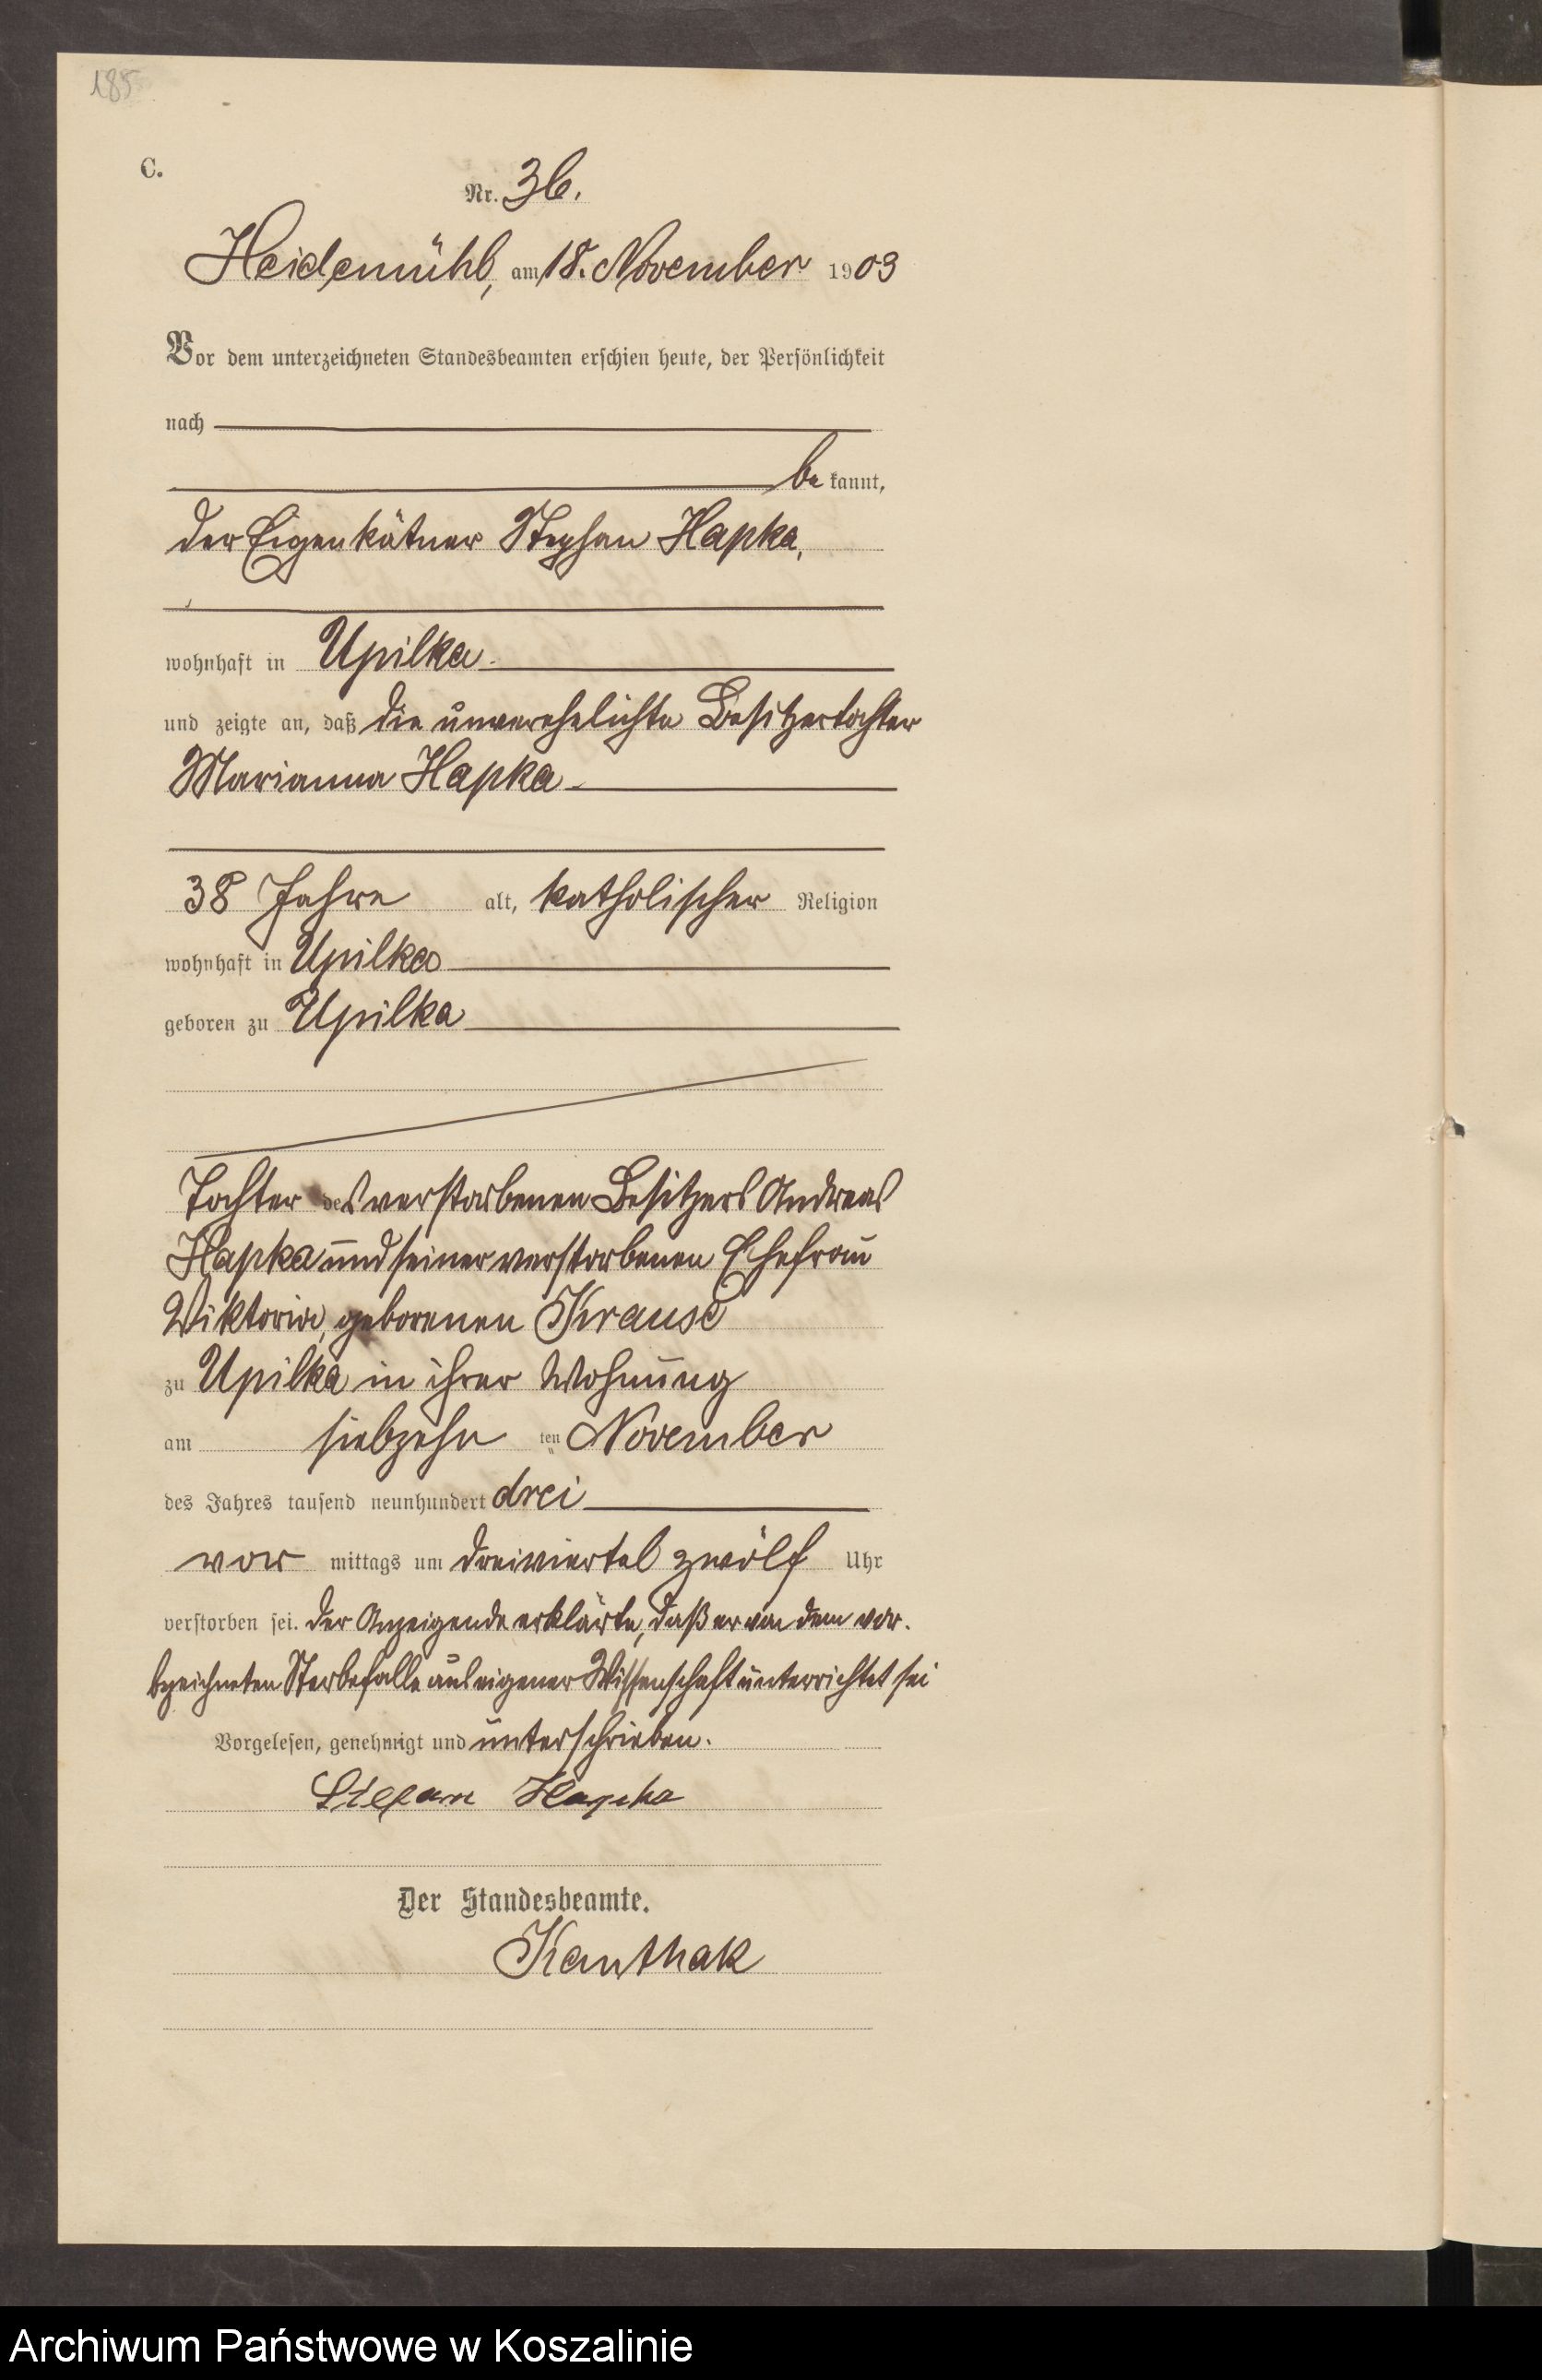 185
C.
Nr. 36.
Heidemühl, am 18. November 1903
Vor dem unterzeichneten Standesbeamten erschien heute, der Persönlichkeit
nach
be kannt,
der Eigenkätner Stephan Hapka,
wohnhaft in Upilka
und zeigte an, daß die unverehelichte Besitzertochter
Marianna Hapka
38 Jahre alt, katholischer Religion
wohnhaft in Upilka
geboren zu Upilka
Tochter des verstorbenen Besitzers Andreas
Hapka und seiner verstorbenen Ehefrau
Wiktoria, geborenen Krause
zu Upilka in ihrer Wohnung
am siebzehn ten November
des Jahres tausend neunhundert drei
vor mittags um dreiviertel zwölf Uhr
verstorben sei. Der Anzeigende erklärte, daß er von dem vor-
bezeichneten Sterbefalle aus eigener Wissenschaft unterrichtet sei
Vorgelesen, genehmigt und unterschrieben.
Stefan Hapka
Der Standesbeamte.
Kanthak
Archiwum Państwowe w Koszalinie